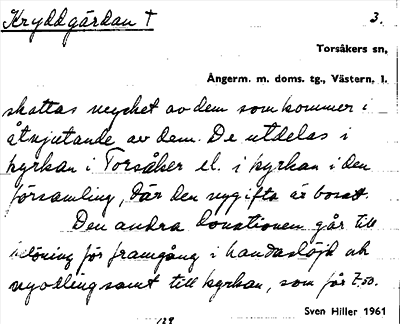 Kryddgårdan †
3.
Torsåkers sn,
Ångerm. m. doms. tg., Västern. l.
skattas mycket av dem som kommer i
åtnjutande av dem. De utdelas i
kyrkan i Torsåker el. i kyrkan i den
församling, där den nygifta är bosatt.
Den andra donationen går till
belöning för framgång i handaslöjd och
nyodling samt till kyrkan, som får 7,50.
Sven Hiller 1961